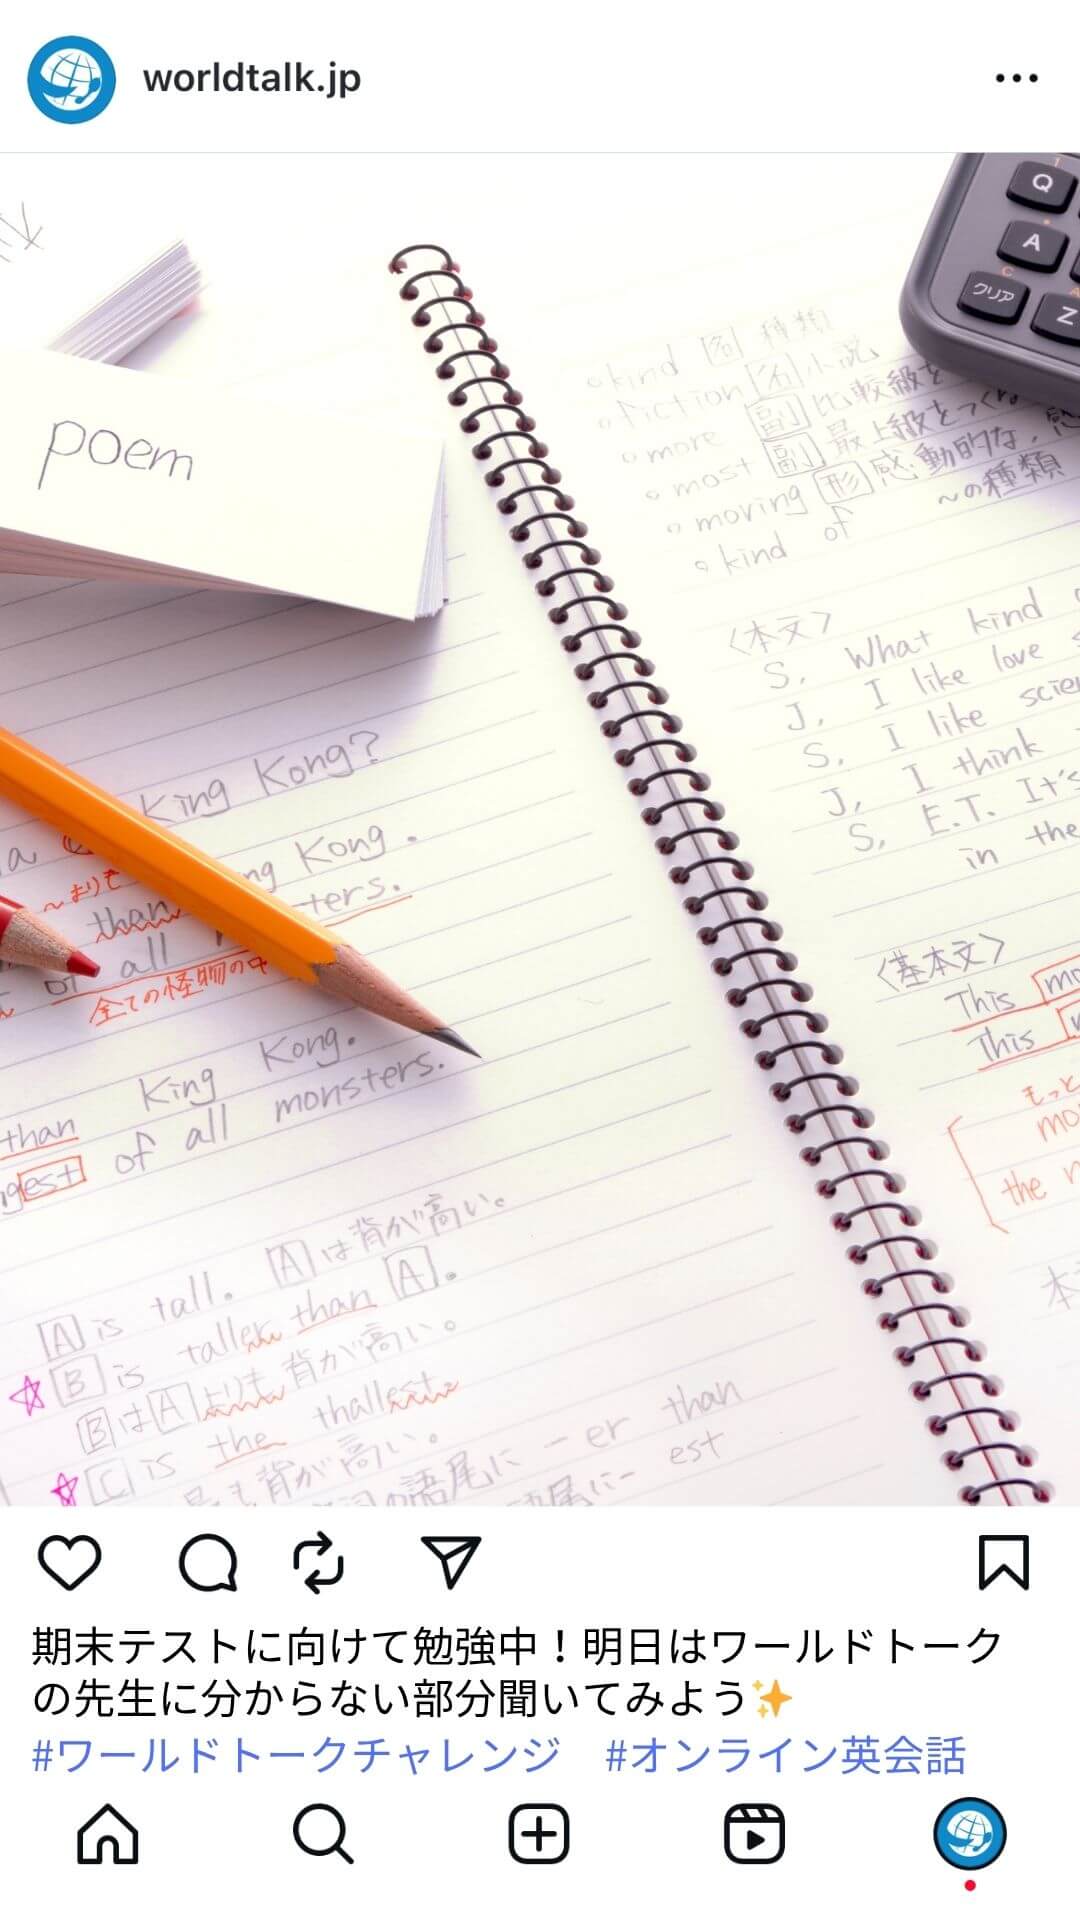 worldtalk.jp
Q
A
クリア
Z
poem
kind 名 種類
fiction 名 小説
more 副 比較級を
most 副 最上級をつくる
moving 形 感動的な、感
kind of ～の種類
〈本文〉
S, What kind
J, I like love
S, I like scie
J, I think
S, E.T. It's
in the
〈基本文〉
This mo
This
もっと
mo
the m
本
King Kong?
a
ng Kong.
～よりも
than
ters.
of all
全ての怪物の中
King Kong.
than
gest of all monsters.
A is tall. Aは背が高い。
B is taller than A.
BはAよりも背が高い。
C is the thallest.
最も背が高い。
語尾に -er than
語尾に- est
期末テストに向けて勉強中！明日はワールドトーク
の先生に分からない部分聞いてみよう✨
#ワールドトークチャレンジ　#オンライン英会話